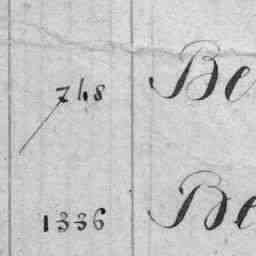 748 Be
1336 Be